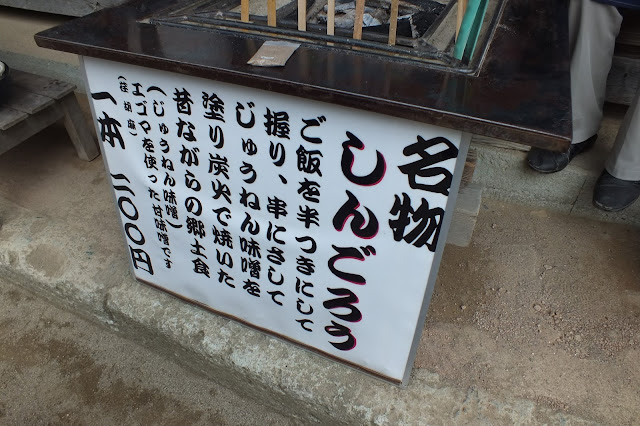 名物
しんごろう
ご飯を半つきにして
握り、串にさして
じゅうねん味噌を
塗り炭火で焼いた
昔ながらの郷土食
(じゅうねん味噌)
エゴマを使った甘味噌です
一本 二〇〇円